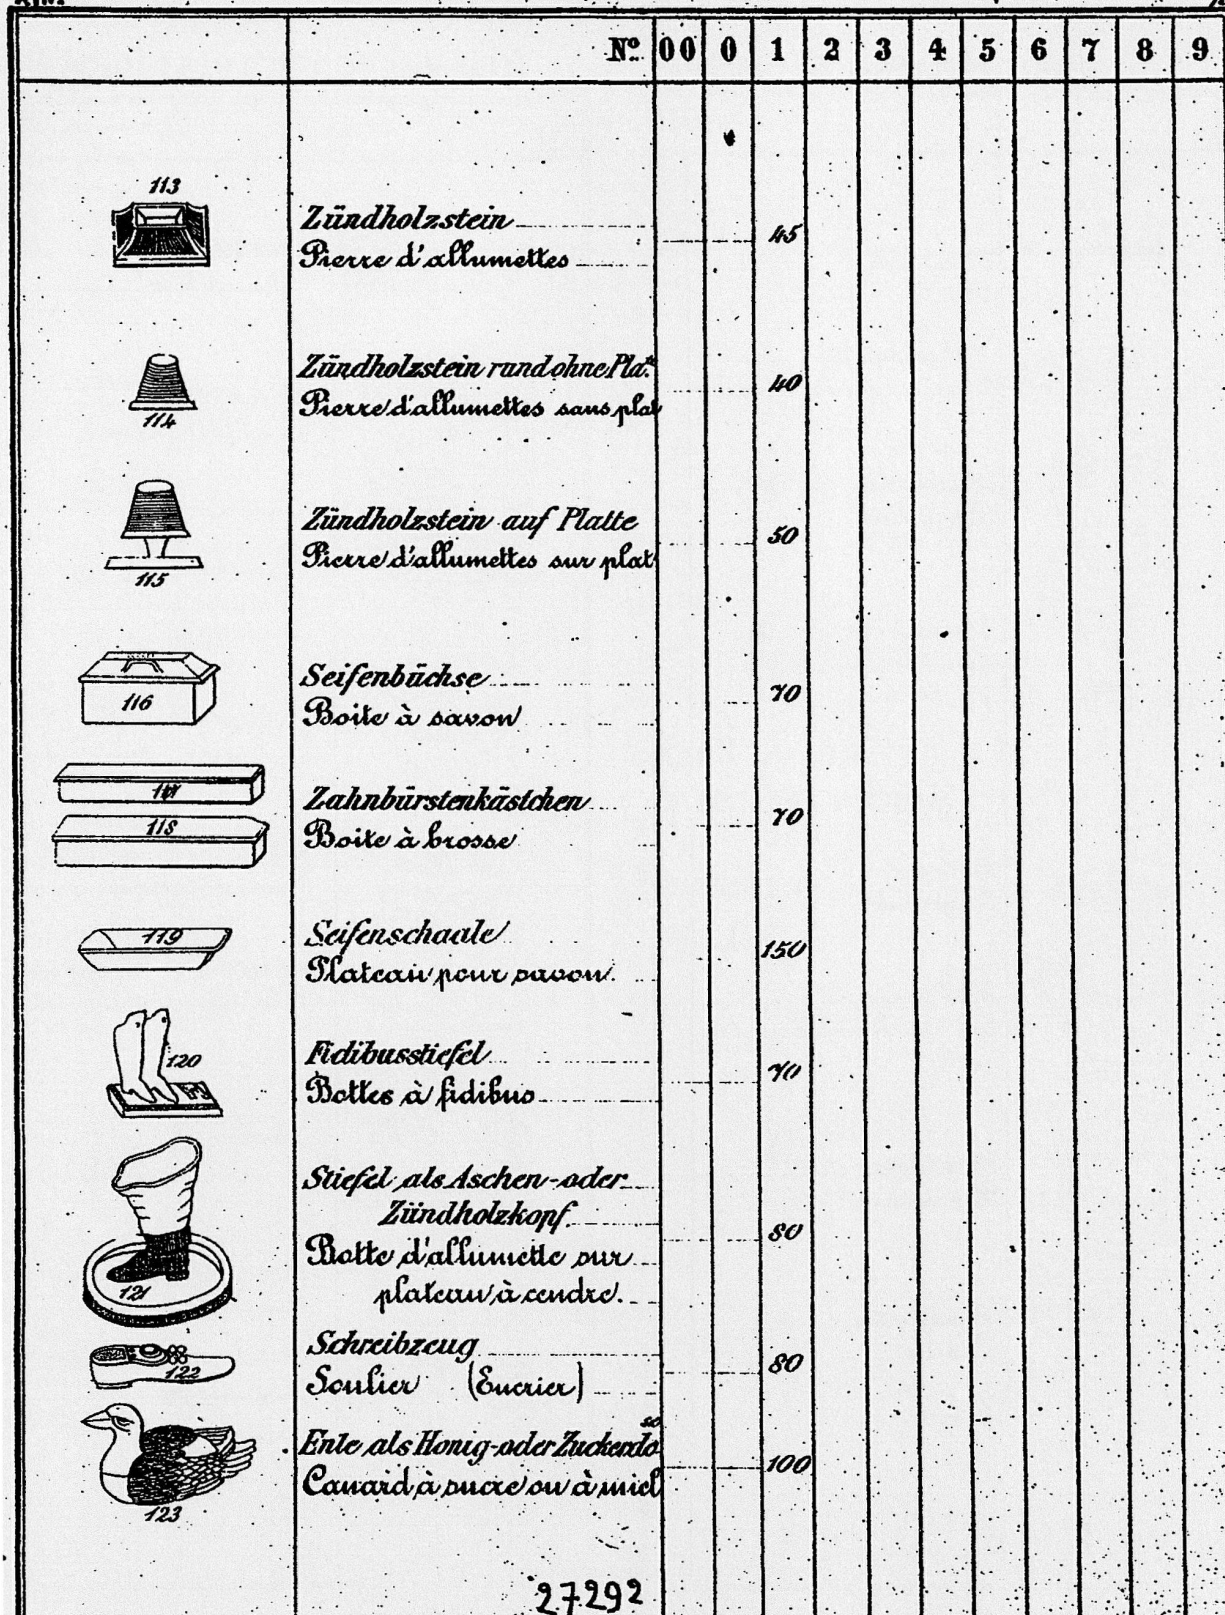 No. 00 0 1 2 3 4 5 6 7 8 9
113
Zündholzstein
Pierre d'allumettes
45
Zündholzstein rund ohne Plat.
Pierre d'allumettes sans plat
40
114
Zündholzstein auf Platte
Pierre d'allumettes sur plat
50
115
Seifenbüchse
116
Boite à savon
70
117
118
Zahnbürstenkästchen
Boite à brosse
70
119
Seifenschaale
Plateau pour savon.
150
120
Fidibusstiefel
Bottes à fidibus
70
Stiefel als Aschen- oder
Zündholzkopf.
Botte d'allumette sur
plateau à cendre.
80
121
Schreibzeug
Soulier (Encrier)
80
122
Ente als Honig- oder Zuckerdo
se
Canard à sucre ou à miel
100
123
27292